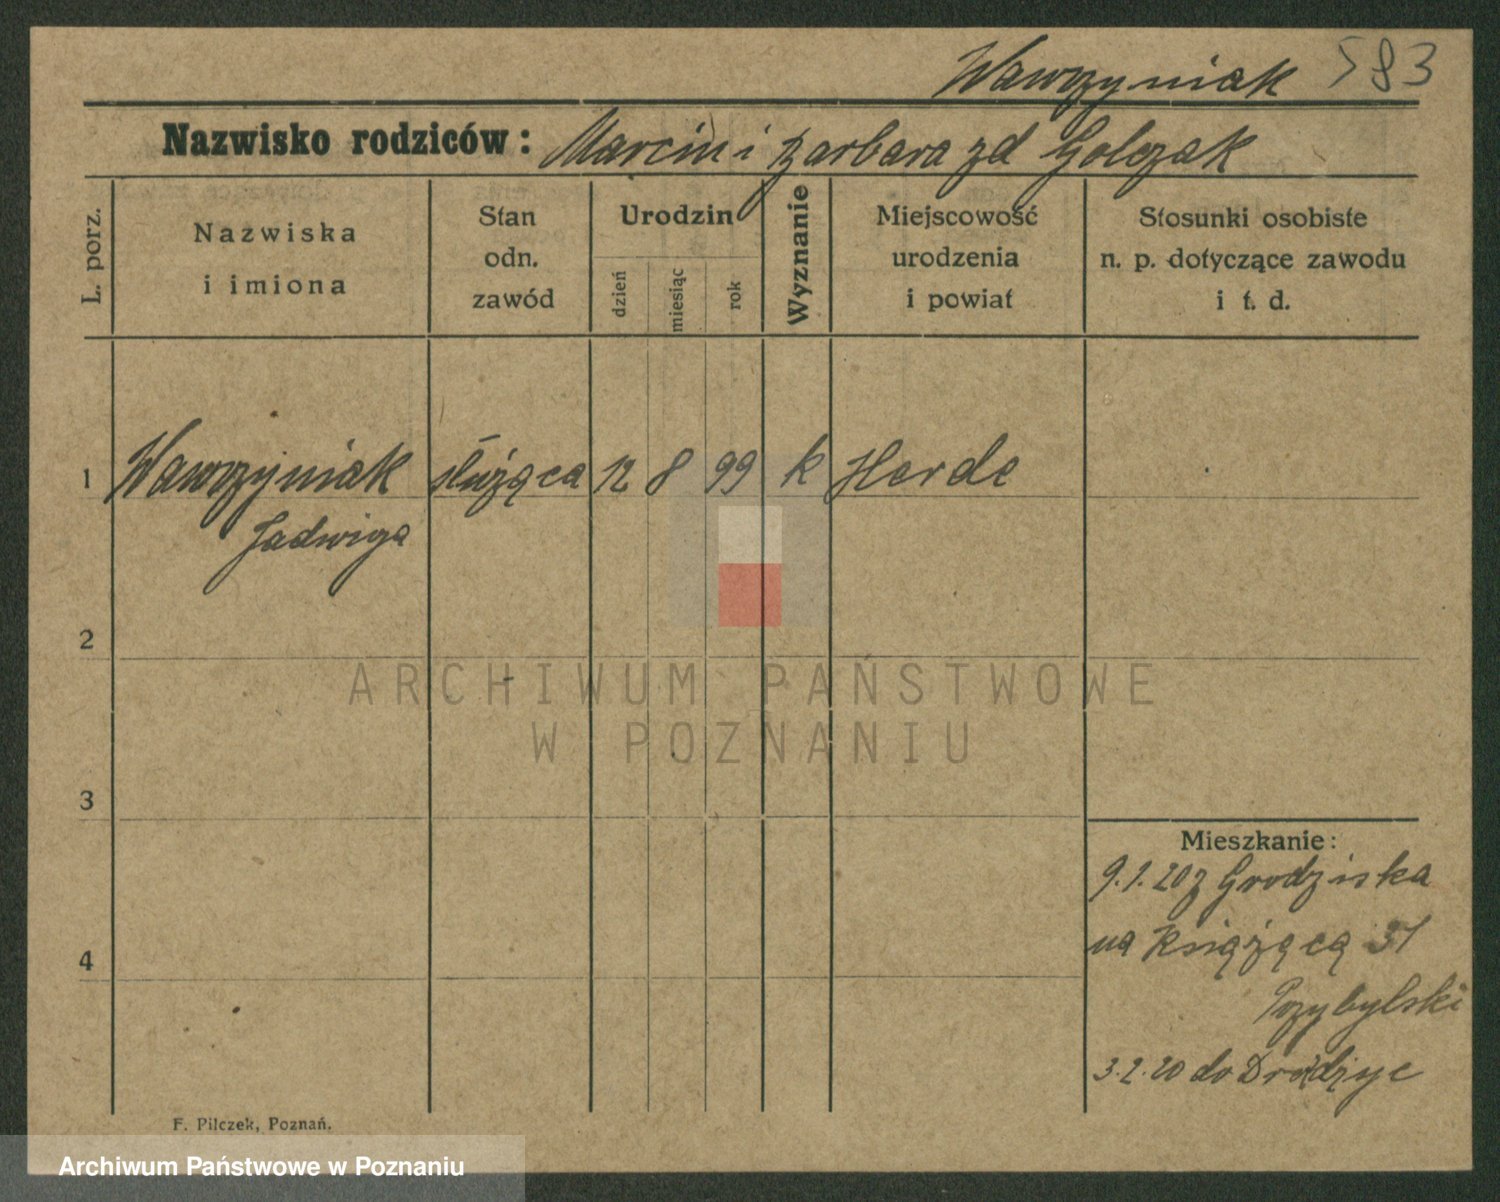 Wawrzyniak 583
Nazwisko rodziców: Marcin i Barbara zd Golczak
L. porz.
Nazwiska
i imiona
Stan
odn.
zawód
Urodzin
dzień
miesiąc
rok
Wyznanie
Miejscowość
urodzenia
i powiat
Stosunki osobiste
n. p. dotyczące zawodu
i t. d.
1 Wawrzyniak służąca 12 8 99 k Herde
Jadwiga
2
3
4
Mieszkanie:
9.1.20 z Grodziska
na Książęcą 31
Przybylski
3.2.20 do
F. Pilczek, Poznań.
ARCHIWUM PAŃSTWOWE
W POZNANIU
Archiwum Państwowe w Poznaniu